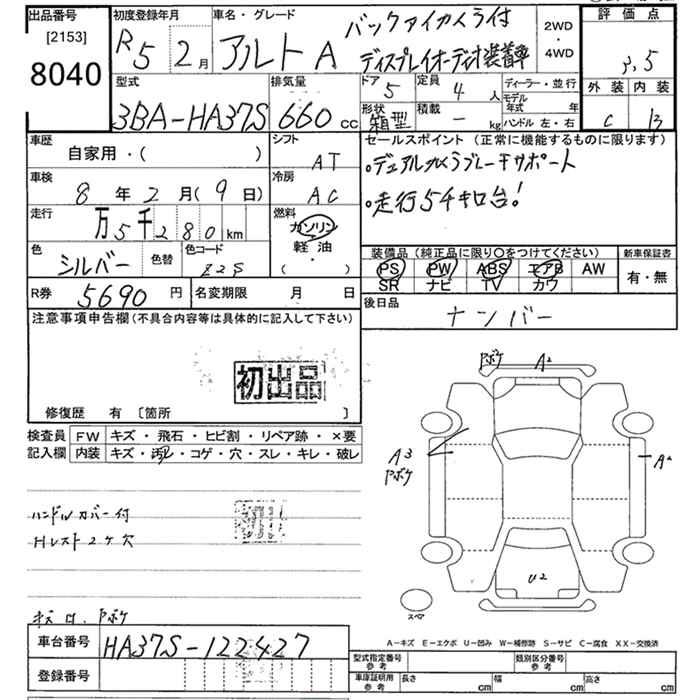 出品番号 初度登録年月 車名・グレード 評価点
[2153] 8040
R5 2月 アルト A バックアイカメラ付 ディスプレイオーディオ装着車 2WD・4WD 3.5
型式 排気量 ドア 5 定員 4人 ディーラー・並行 外装 内装
3BA-HA37S 660cc 形状 箱型 積載 - kg モデル年式 年 ハンドル 左・右 C B
車歴 シフト セールスポイント (正常に機能するものに限ります)
自家用・( ) AT ・デュアルカメラブレーキサポート
車検 冷房
8年2月(9日) AC ・走行5千キロ台!
走行 燃料
万5千280km ガソリン 軽油 ・( )
色 シルバー 色替 色コード Z2S
装備品 (純正品に限り○をつけてください) 新車保証書
PS PW ABS エアB AW 有・無
SR ナビ TV カウ
R券 5690円 名変期限 月 日
後日品 ナンバー
注意事項申告欄(不具合内容等は具体的に記入して下さい)
初出品
修復歴 有 [箇所 ]
検査員記入欄 FW キズ・飛石・ヒビ割・リペア跡・×要
内装 キズ・汚レ・コゲ・穴・スレ・キレ・破レ
Pボケ A2
A3 Pボケ
A2
U2
スペア
ハンドルカバー付
Hレスト2ケ穴
A-キズ E-エクボ U-凹み W-補修跡 S-サビ C-腐食 XX-交換済
車台番号 HA37S-122427
登録番号
型式指定番号 参考 類別区分番号 参考
車庫証明用 参考 長さ cm 幅 cm 高さ cm